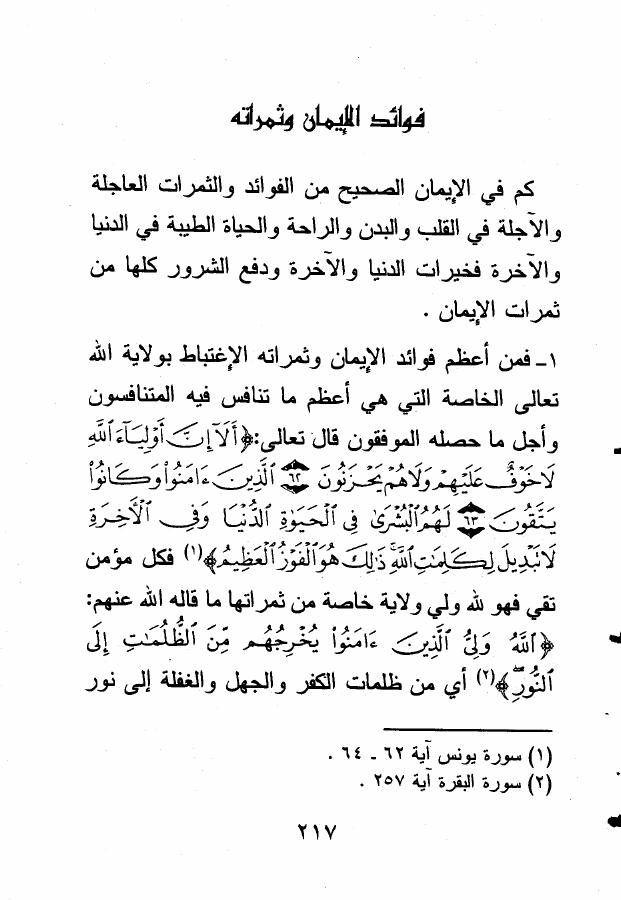 فوائد الإيمان وثمراته
كم في الإيمان الصحيح من الفوائد والثمرات العاجلة
والآجلة في القلب والبدن والراحة والحياة الطيبة في الدنيا
والآخرة فخيرات الدنيا والآخرة ودفع الشرور كلها من
ثمرات الإيمان .
١ـ فمن أعظم فوائد الإيمان وثمراته الإغتباط بولاية الله
تعالى الخاصة التي هي أعظم ما تنافس فيه المتنافسون
وأجل ما حصله الموفقون قال تعالى: ﴿أَلَآ إِنَّ أَوْلِيَآءَ ٱللَّهِ
لَا خَوْفٌ عَلَيْهِمْ وَلَا هُمْ يَحْزَنُونَ ٦٢ ٱلَّذِينَ ءَامَنُواْ وَكَانُواْ
يَتَّقُونَ ٦٣ لَهُمُ ٱلْبُشْرَىٰ فِى ٱلْحَيَوٰةِ ٱلدُّنْيَا وَفِى ٱلْأَخِرَةِ
لَا تَبْدِيلَ لِكَلِمَٰتِ ٱللَّهِ ذَٰلِكَ هُوَ ٱلْفَوْزُ ٱلْعَظِيمُ﴾(١) فكل مؤمن
تقي فهو لله ولي ولاية خاصة من ثمراتها ما قاله الله عنهم:
﴿ٱللَّهُ وَلِىُّ ٱلَّذِينَ ءَامَنُواْ يُخْرِجُهُم مِّنَ ٱلظُّلُمَٰتِ إِلَى
ٱلنُّورِ﴾(٢) أي من ظلمات الكفر والجهل والغفلة إلى نور
(١) سورة يونس آية ٦٢ ـ ٦٤ .
(٢) سورة البقرة آية ٢٥٧ .
٢١٧